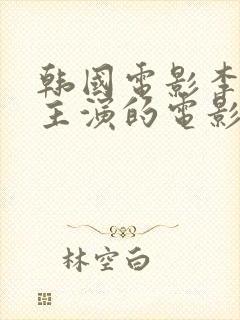 韩國電影李
主演的電影
林空白